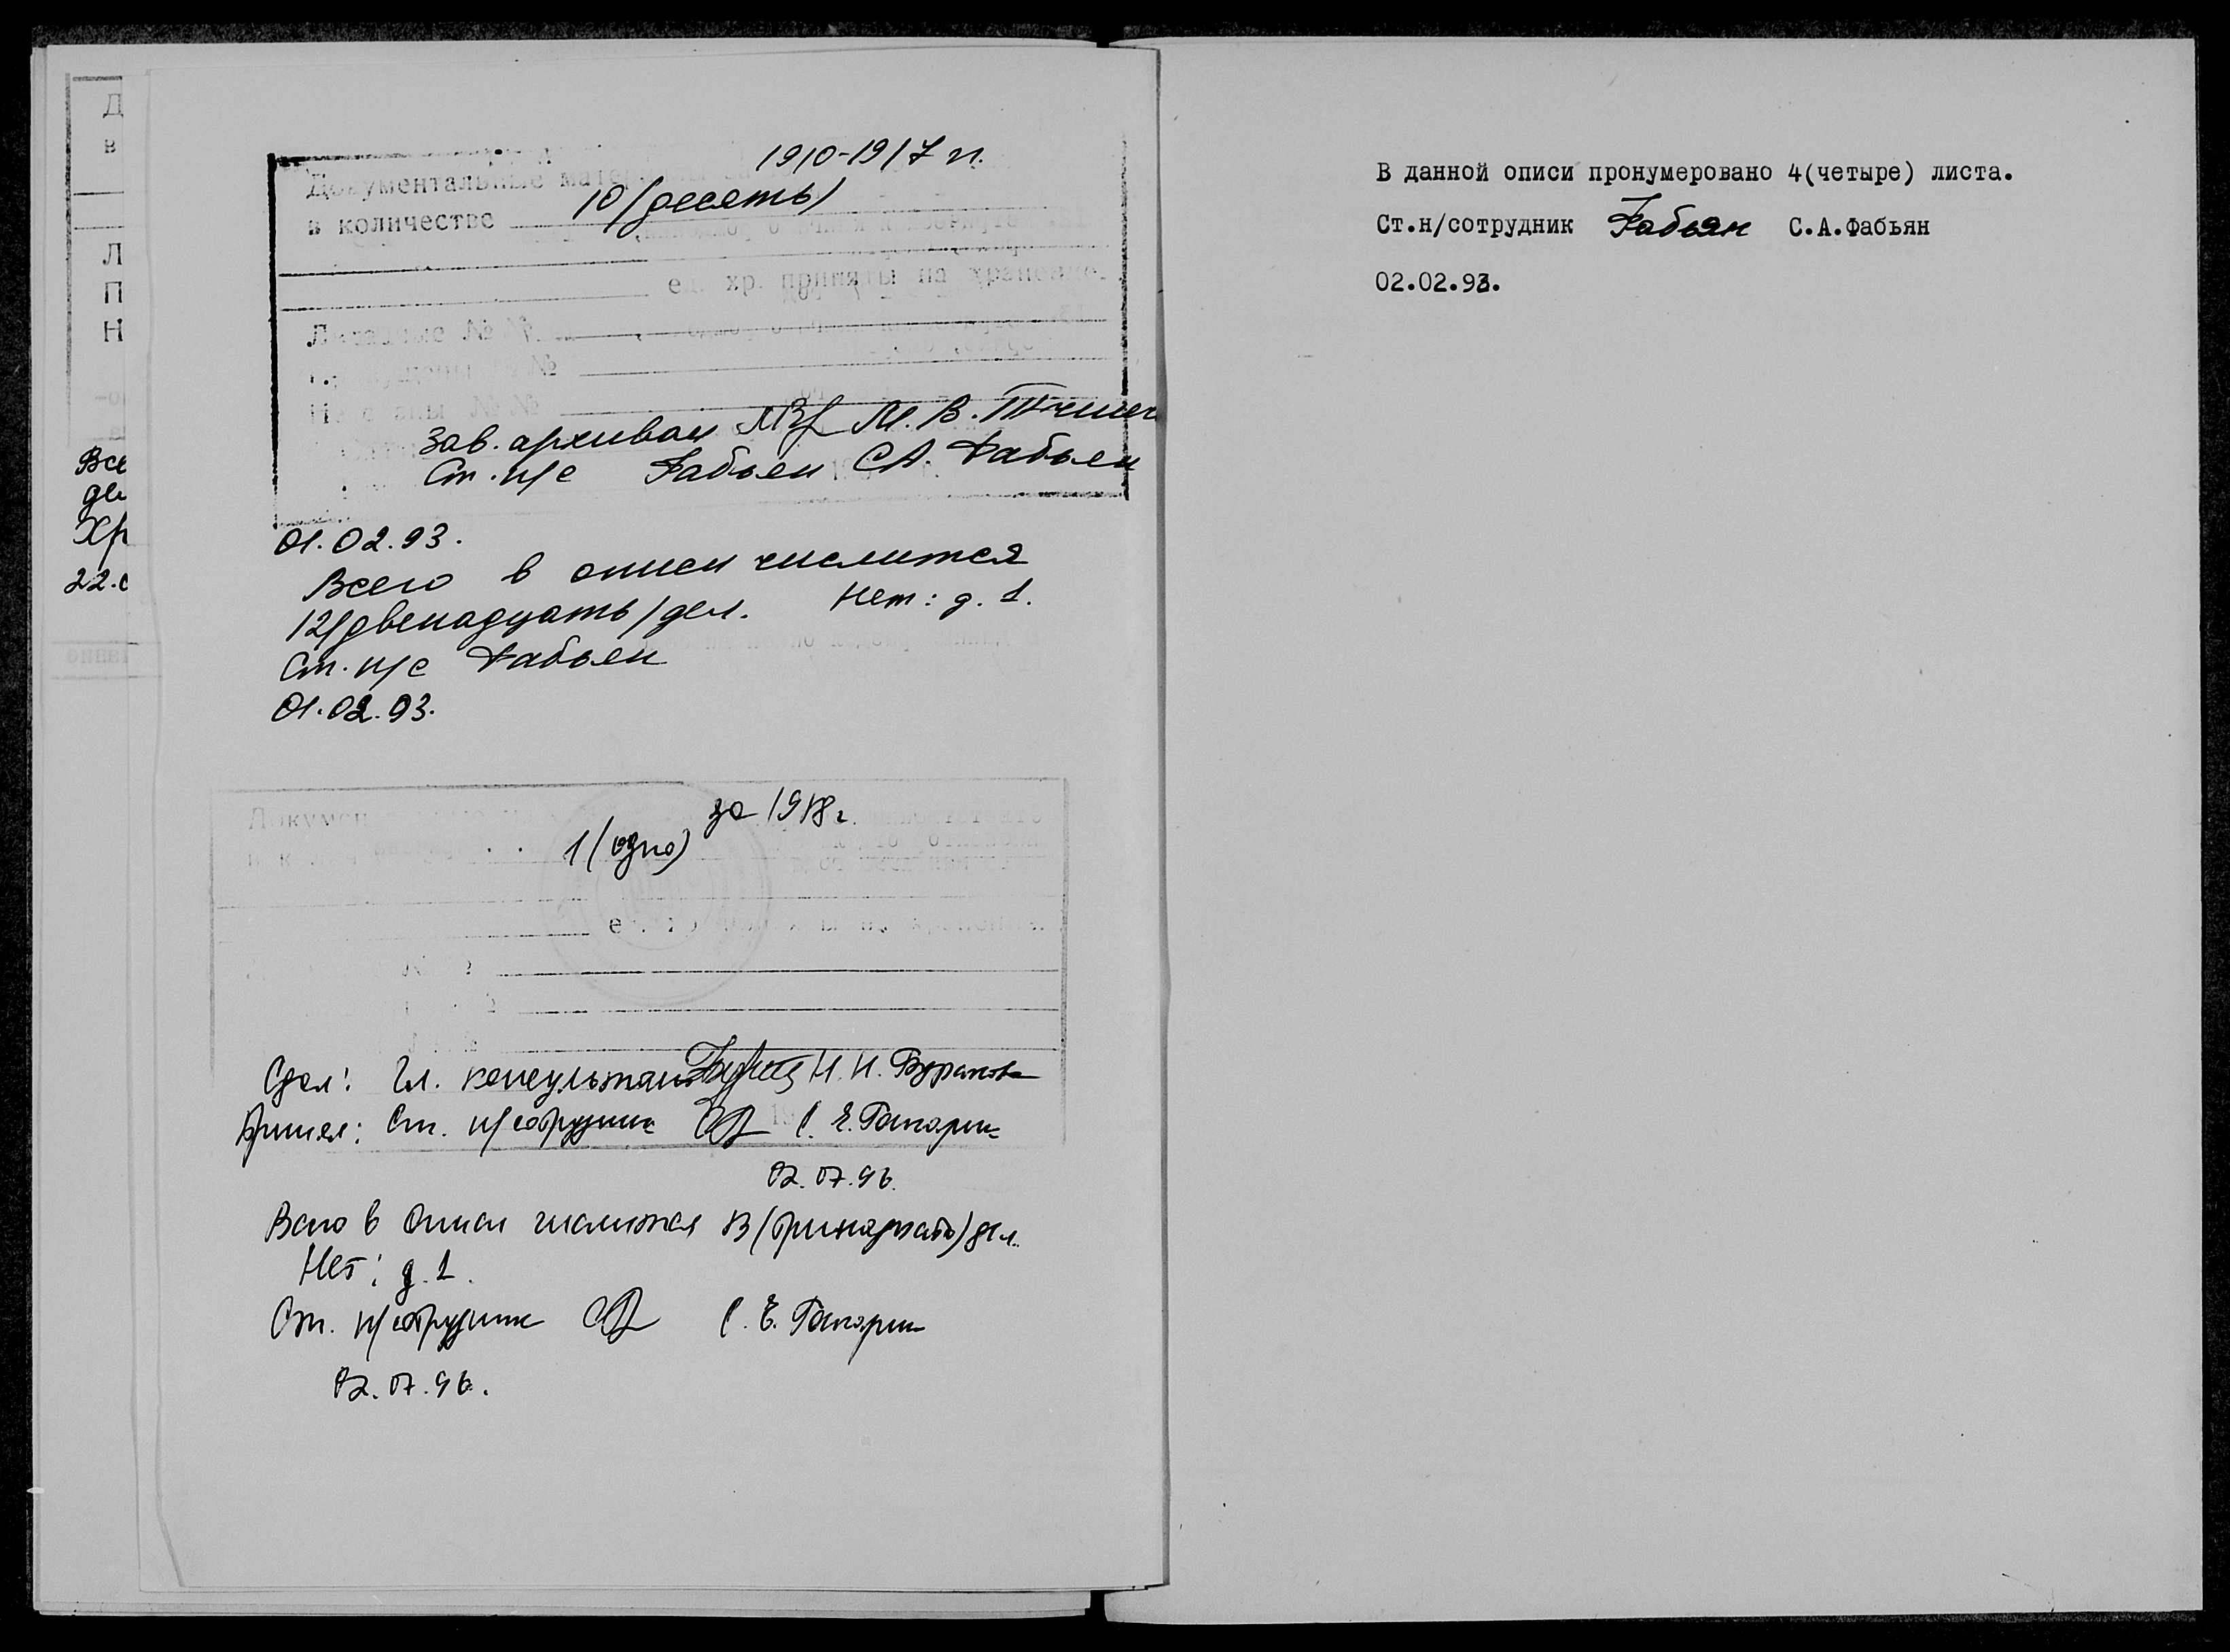 Д
в
Л
П
Н
Все
де
Хр
22.0
1910-1917 гг.
Документальные материалы за
в количестве 10/десять/
ед. хр. приняты на хранение.
Литерные №№
№
№№
Зав. архивом М.В.
Ст. н/с Фабьян С.А. Фабьян
01.02.93.
Всего в описи числится
12/двенадцать/дел. Нет: д. 1.
Ст. н/с Фабьян
01.02.93.
за 1918 г.
1 (одно)
Сдал: Гл. консультант Н.Н. Буракова
Принял: Ст. н/сотрудник С.Е.
02.07.96.
Всего в описи числится 13 (тринадцать) дел.
Нет: д. 1.
Ст. н/сотрудник С.Е.
02.07.96.
В данной описи пронумеровано 4(четыре) листа.
Ст.н/сотрудник Фабьян С.А.Фабьян
02.02.93.